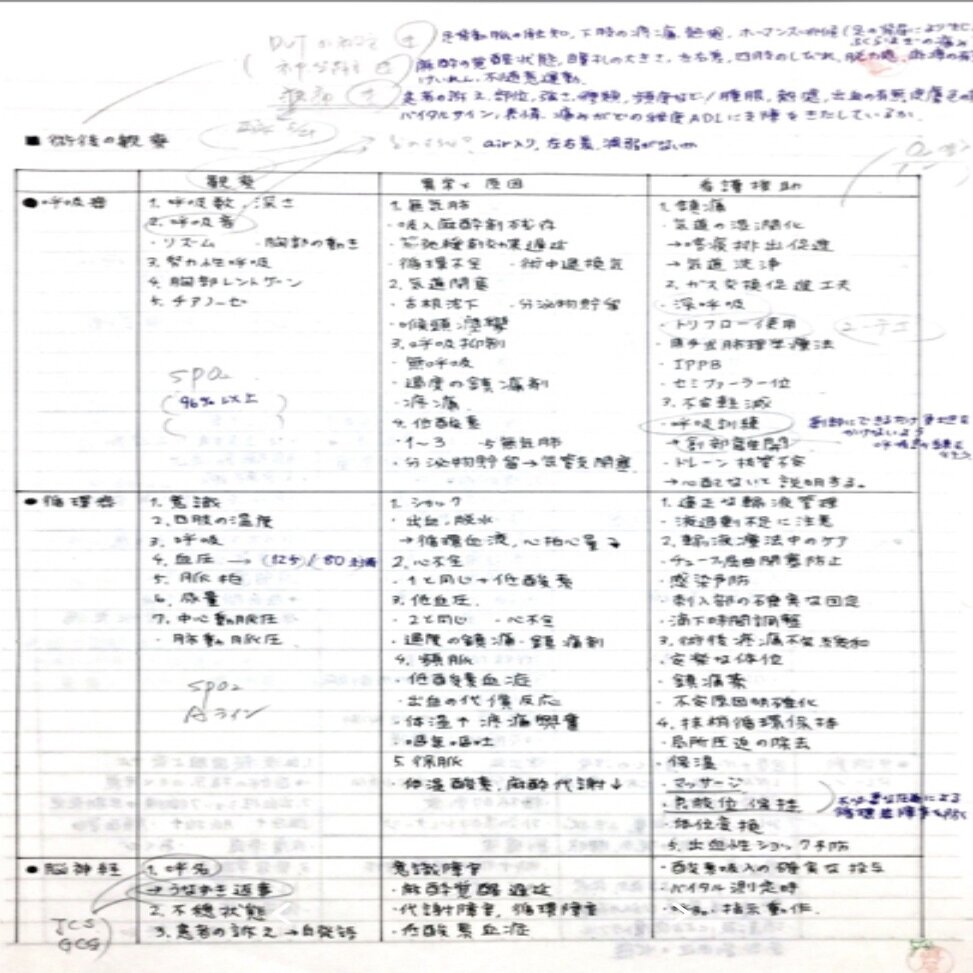 DVTがわ
足背動脈の触知、下肢の疼痛、熱感、ホーマンズ
神経
麻酔の覚醒状態、瞳孔の大きさ、左右差、四肢のしびれ、脱力感
けいれん、不随意運動
患者の訴え、部位、強さ、種類、頻度など/腫脹、熱感、出血の有無
バイタルサイン、表情、痛みがどの程度ADLに支障をきたしているか
■術後の観察
air入り、左右差、減弱がないか
観察
異常と原因
看護援助
●呼吸器
1. 呼吸数、深さ
2. 呼吸音
・リズム ・胸部の動き
3. 努力性呼吸
4. 胸部レントゲン
5. チアノーゼ
SPO2
(96%以上)
1. 無気肺
・吸入麻酔剤残存
・筋弛緩剤効果遅延
・循環不全 ・術中過換気
2. 気道閉塞
・舌根沈下 ・分泌物貯留
・喉頭痙攣
3. 呼吸抑制
・無呼吸
・過度の鎮痛剤
・疼痛
4. 低酸素
・1〜3 ・無気肺
・分泌物貯留→気管支閉塞
1. 鎮痛
・気道の湿潤化
→喀痰排出促進
→気道洗浄
2. ガス交換促進工夫
・深呼吸
・トリフロー使用
・用手式肺理学療法
・IPPB
・セミファーラー位
3. 不安軽減
・呼吸訓練
→創部離開
・ドレーン抜管不安
→心配ないと説明する。
●循環器
1. 意識
2. 四肢の温度
3. 呼吸
4. 血圧 → (125)/80
5. 脈拍
6. 尿量
7. 中心静脈圧
・肺動脈圧
SPO2
Aライン
1. ショック
・出血、脱水
→循環血液、心拍心量↓
2. 心不全
・1と同じ→低酸素
3. 低血圧
・2と同じ ・心不全
・過度の鎮痛・鎮痛剤
4. 頻脈
・低酸素血症
・出血の代償反応
・体温↑疼痛興奮
・嘔気・嘔吐
5. 徐脈
・低温酸素、麻酔代謝↓
1. 適正な輸液管理
・液過剰不足に注意
2. 輸液療法中のケア
・チューブ屈曲閉塞防止
・感染予防
・刺入部の確実な固定
・滴下時間調整
3. 術後疼痛不安緩和
・安楽な体位
・鎮痛薬
・不安原因明確化
4. 抹梢循環保持
・局所圧迫の除去
・保温
・マッサージ
・良肢位保持
・体位変換
5. 出血性ショック予防
●脳神経
JCS
GCS
1. 呼名
→うなずき返事
2. 不穏状態
3. 患者の訴え→自発語
意識障害
・麻酔覚醒遅延
・代謝障害、循環障害
・低酸素血症
・酸素吸入の確実な投与
・バイタル測定時
指示動作